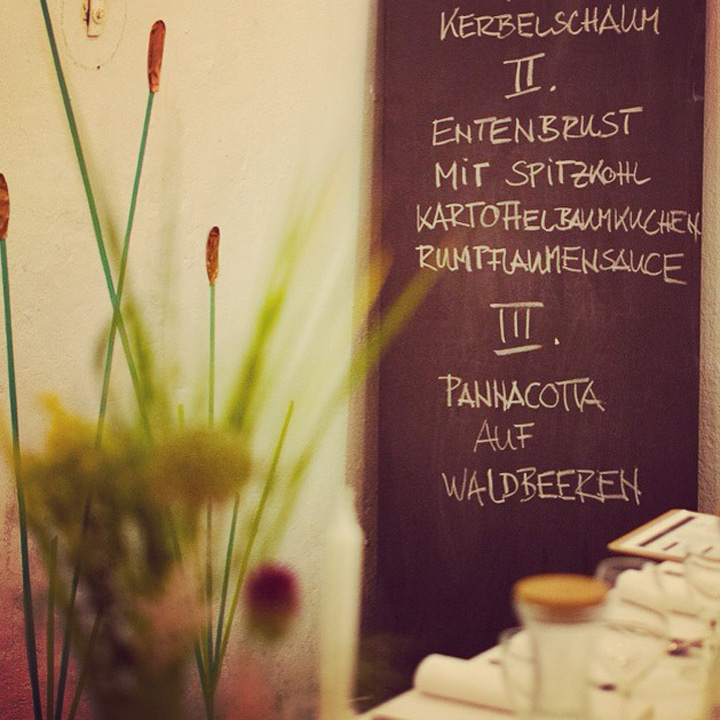 KERBELSCHAUM
II.
ENTENBRUST
MIT SPITZKOHL
KARTOFFELBAUMKUCHEN
RUMPFLAUMENSAUCE
III.
PANNACOTTA
AUF
WALDBEEREN